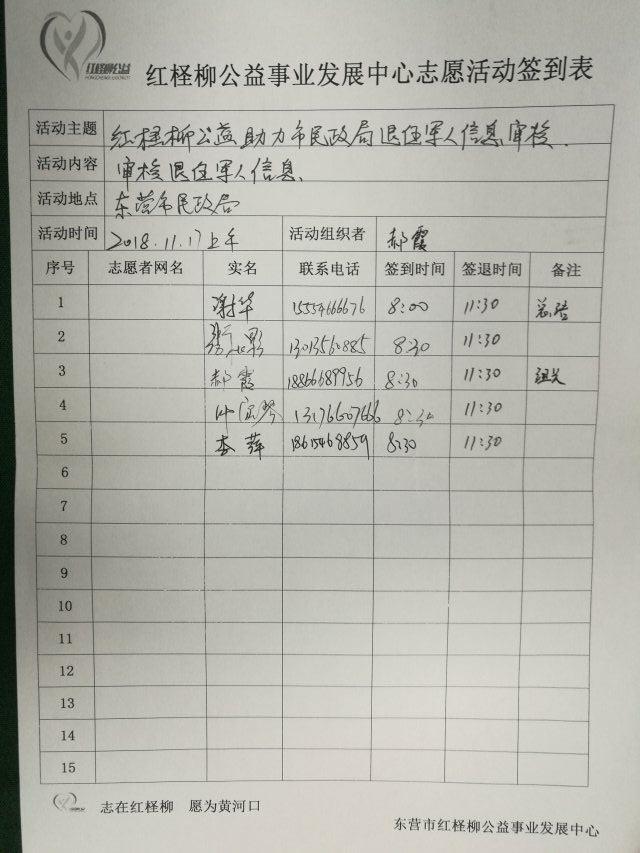 红柽柳公益
红柽柳公益事业发展中心志愿活动签到表
活动主题 红柽柳公益助力市民政局退伍军人信息审核.
活动内容 审核退伍军人信息、
活动地点 东营市民政局
活动时间 2018.11.17上午 活动组织者 郝霞
序号 志愿者网名 实名 联系电话 签到时间 签退时间 备注
1 谢华 15554666676 8:00 11:30
2 13013560885 8:30 11:30
3 郝霞 18866689956 8:30 11:30
4 13176607666 8:30 11:30
5 李萍 18615468859 8:30 11:30
6
7
8
9
10
11
12
13
14
15
志在红柽柳 愿为黄河口
东营市红柽柳公益事业发展中心